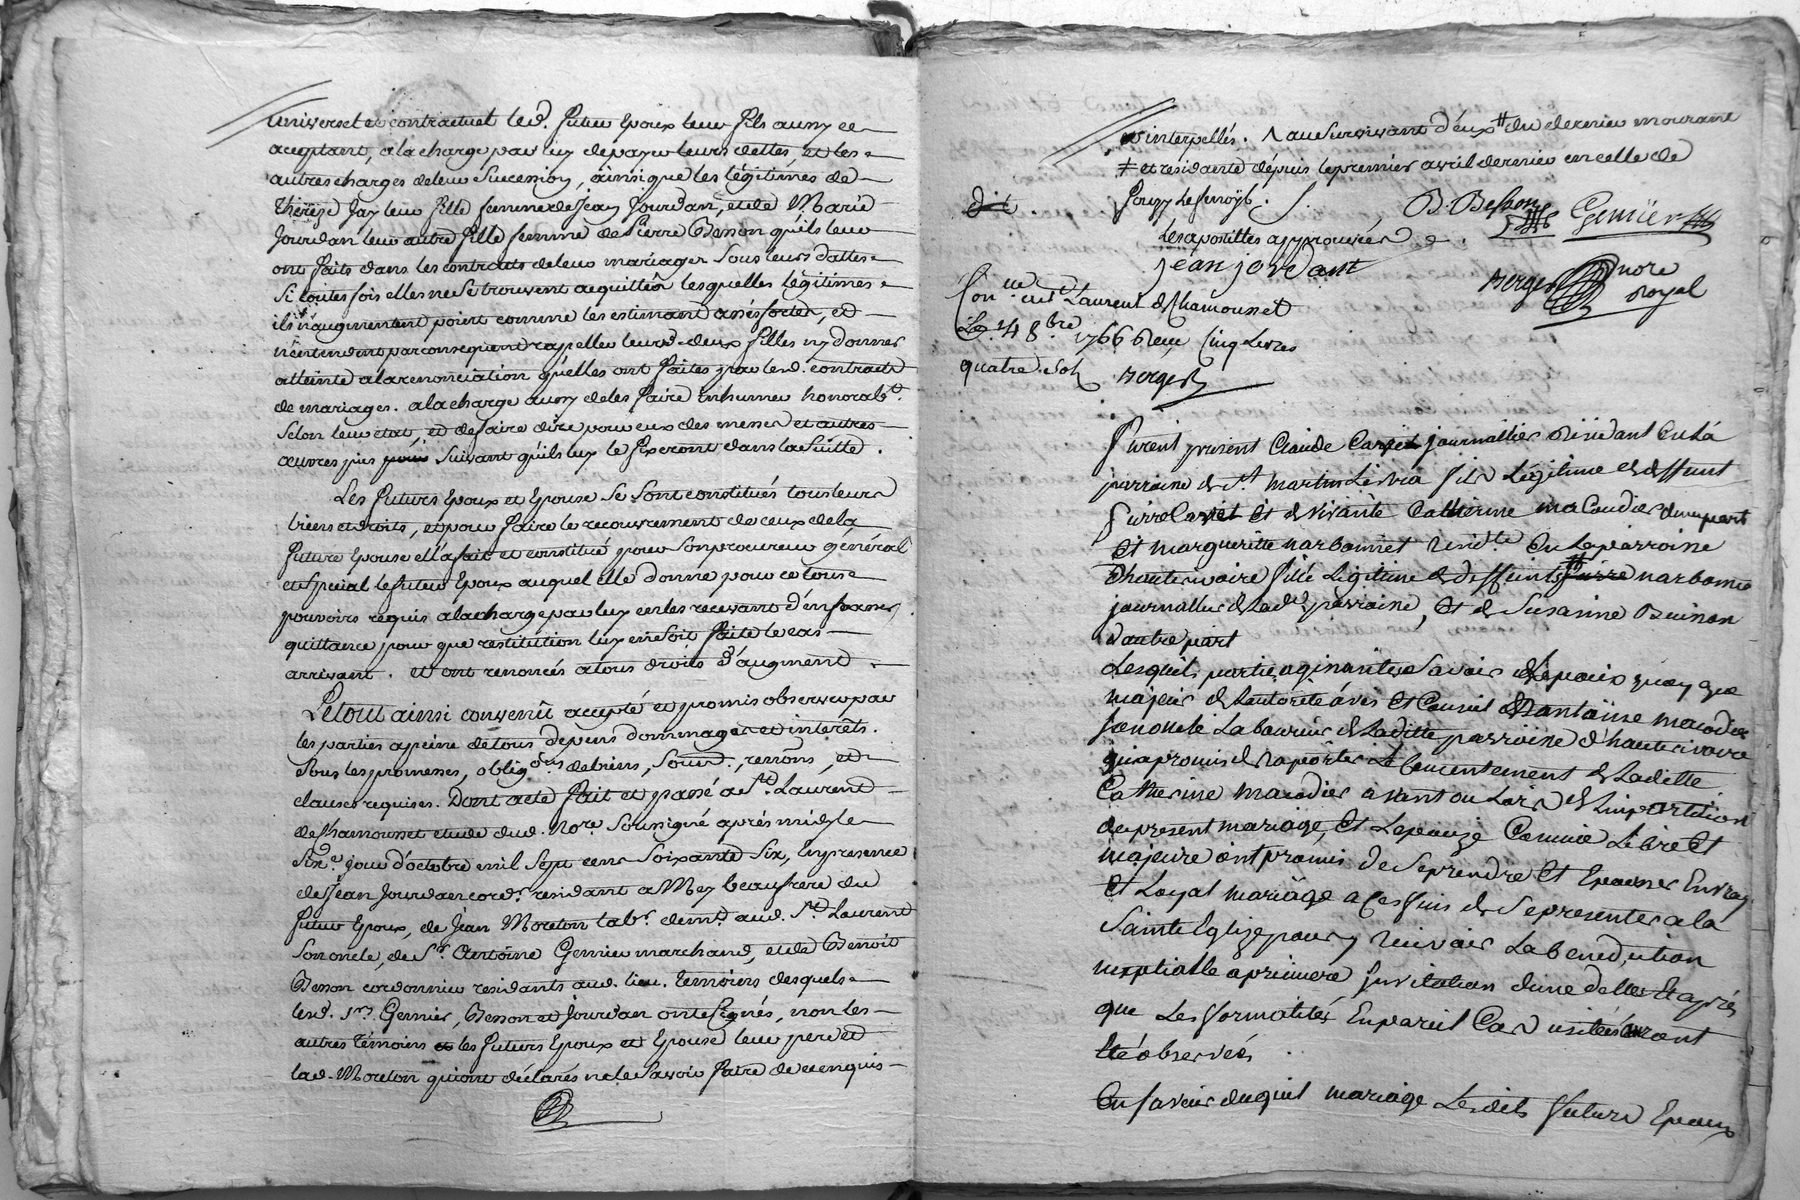 universel et contractuel led. futur Epoux leur fils aussy ce
acceptant, a la charge par luy de payer leurs dettes, et les
autres charges de leur succession, ainsi que les légitimes de
Therèze Jay leur fille femme de Jean Jourdan, et de Marie
Jourdan leur autre fille femme de Pierre Besson qu'ils leur
ont faits dans les contrats de leurs mariages sous leurs dattes
si toutes fois elles ne se trouvent acquittées lesquelles légitimes
ils n'augmentent point comme les estimant assés fortes, et
n'entendent par consequent rappeller leursd. deux filles ny donner
atteinte a la renonciation qu'elles ont faites par lesd. contracts
de mariages. a la charge aussy de les faire inhumer honorabt.
selon leur état, et de faire dire pour eux des messes et autres
œuvres pies suivant qu'ils luy le fixeront dans la suitte.
Les futurs Epoux et Epouse se sont constitués tous leurs
biens et droits, et pour faire le recouvrement de ceux de la
future Epouse elle a fait et constitué pour son procureur général
et special le futur Epoux auquel elle donne pour ce tous
pouvoirs requis a la charge par luy en les recevant d'en passer
quittance pour que restitution luy en soit faite le cas
arrivant. et ont renoncés a tous droits d'augment.
Le tout ainsi convenu accepté et promis observer par
les parties a peine de tous depens dommages et interêts.
sous les promesses, obligons de biens, soumd., renons, et
clauses requises. Dont acte fait et passé a St. Laurent
de Chamousset etude dud. Nore. soussigné après midy le
six.e jour d'octobre mil sept cens soixante six, en presence
de Jean Jourdan cord.r residant a Meys beaufrere du
futur Epoux, de Jean Moreton lab.r demt. aud. St. Laurent
son oncle, de Sr. Antoine Germier marchand, et de Benoit
Besson cordonnier residants aud. lieu. temoins desquels
lesd. Srs. Germier, Besson et Jourdan ont signés, non les
autres témoins les futurs Epoux et Epouse leur pere et
lad. Moreton qui ont déclarés ne le savoir faire de ce enquis
et interpellés. au survivant d'eux # du dernier mourant
≠ et residante dépuis le premier avril dernier en celle de
B. Besson Germier
Les apostilles approuvées
jean jordant
Berger nore royal
Con.lé à St Laurent de Chamousset
Le 14 8bre 1766 Reçu Cinq Livres
quatre sols Berger
Furent present Claude journallier residant en la
parroisse de St. martin fils Légitime de deffunt
et de vivante Catherine macoudier d'une part
Et margueritte narbonnet resid.te en la parroisse
d'hauterivoire fille Légitime de deffunts Pierre narbonnet
journallier de lad. parroisse, et de Susanne Buisson
d'autre part
Lesquels parties savoir L'epoux quoy que
majeur de Lautorité avis et Conseil d'antoine macodier
son oncle Laboureur de Laditte parroisse d'hauterivoire
qui a promis de raporter Le consentement de Laditte
Catherine macodier avant ou Lors de
du present mariage, et Lepouze Comme Libre et
majeure ont promis de se prendre et Epouser En vray
et Loyal mariage a ces fins de se presenter a la
Sainte Eglize pour y recevoir La benediction
nuptialle a premiere Invitation d'une d'elles Et après
que Les formalités En pareil Cas usitées auront
été observées
En faveur duquel mariage Lesdits futurs Epoux